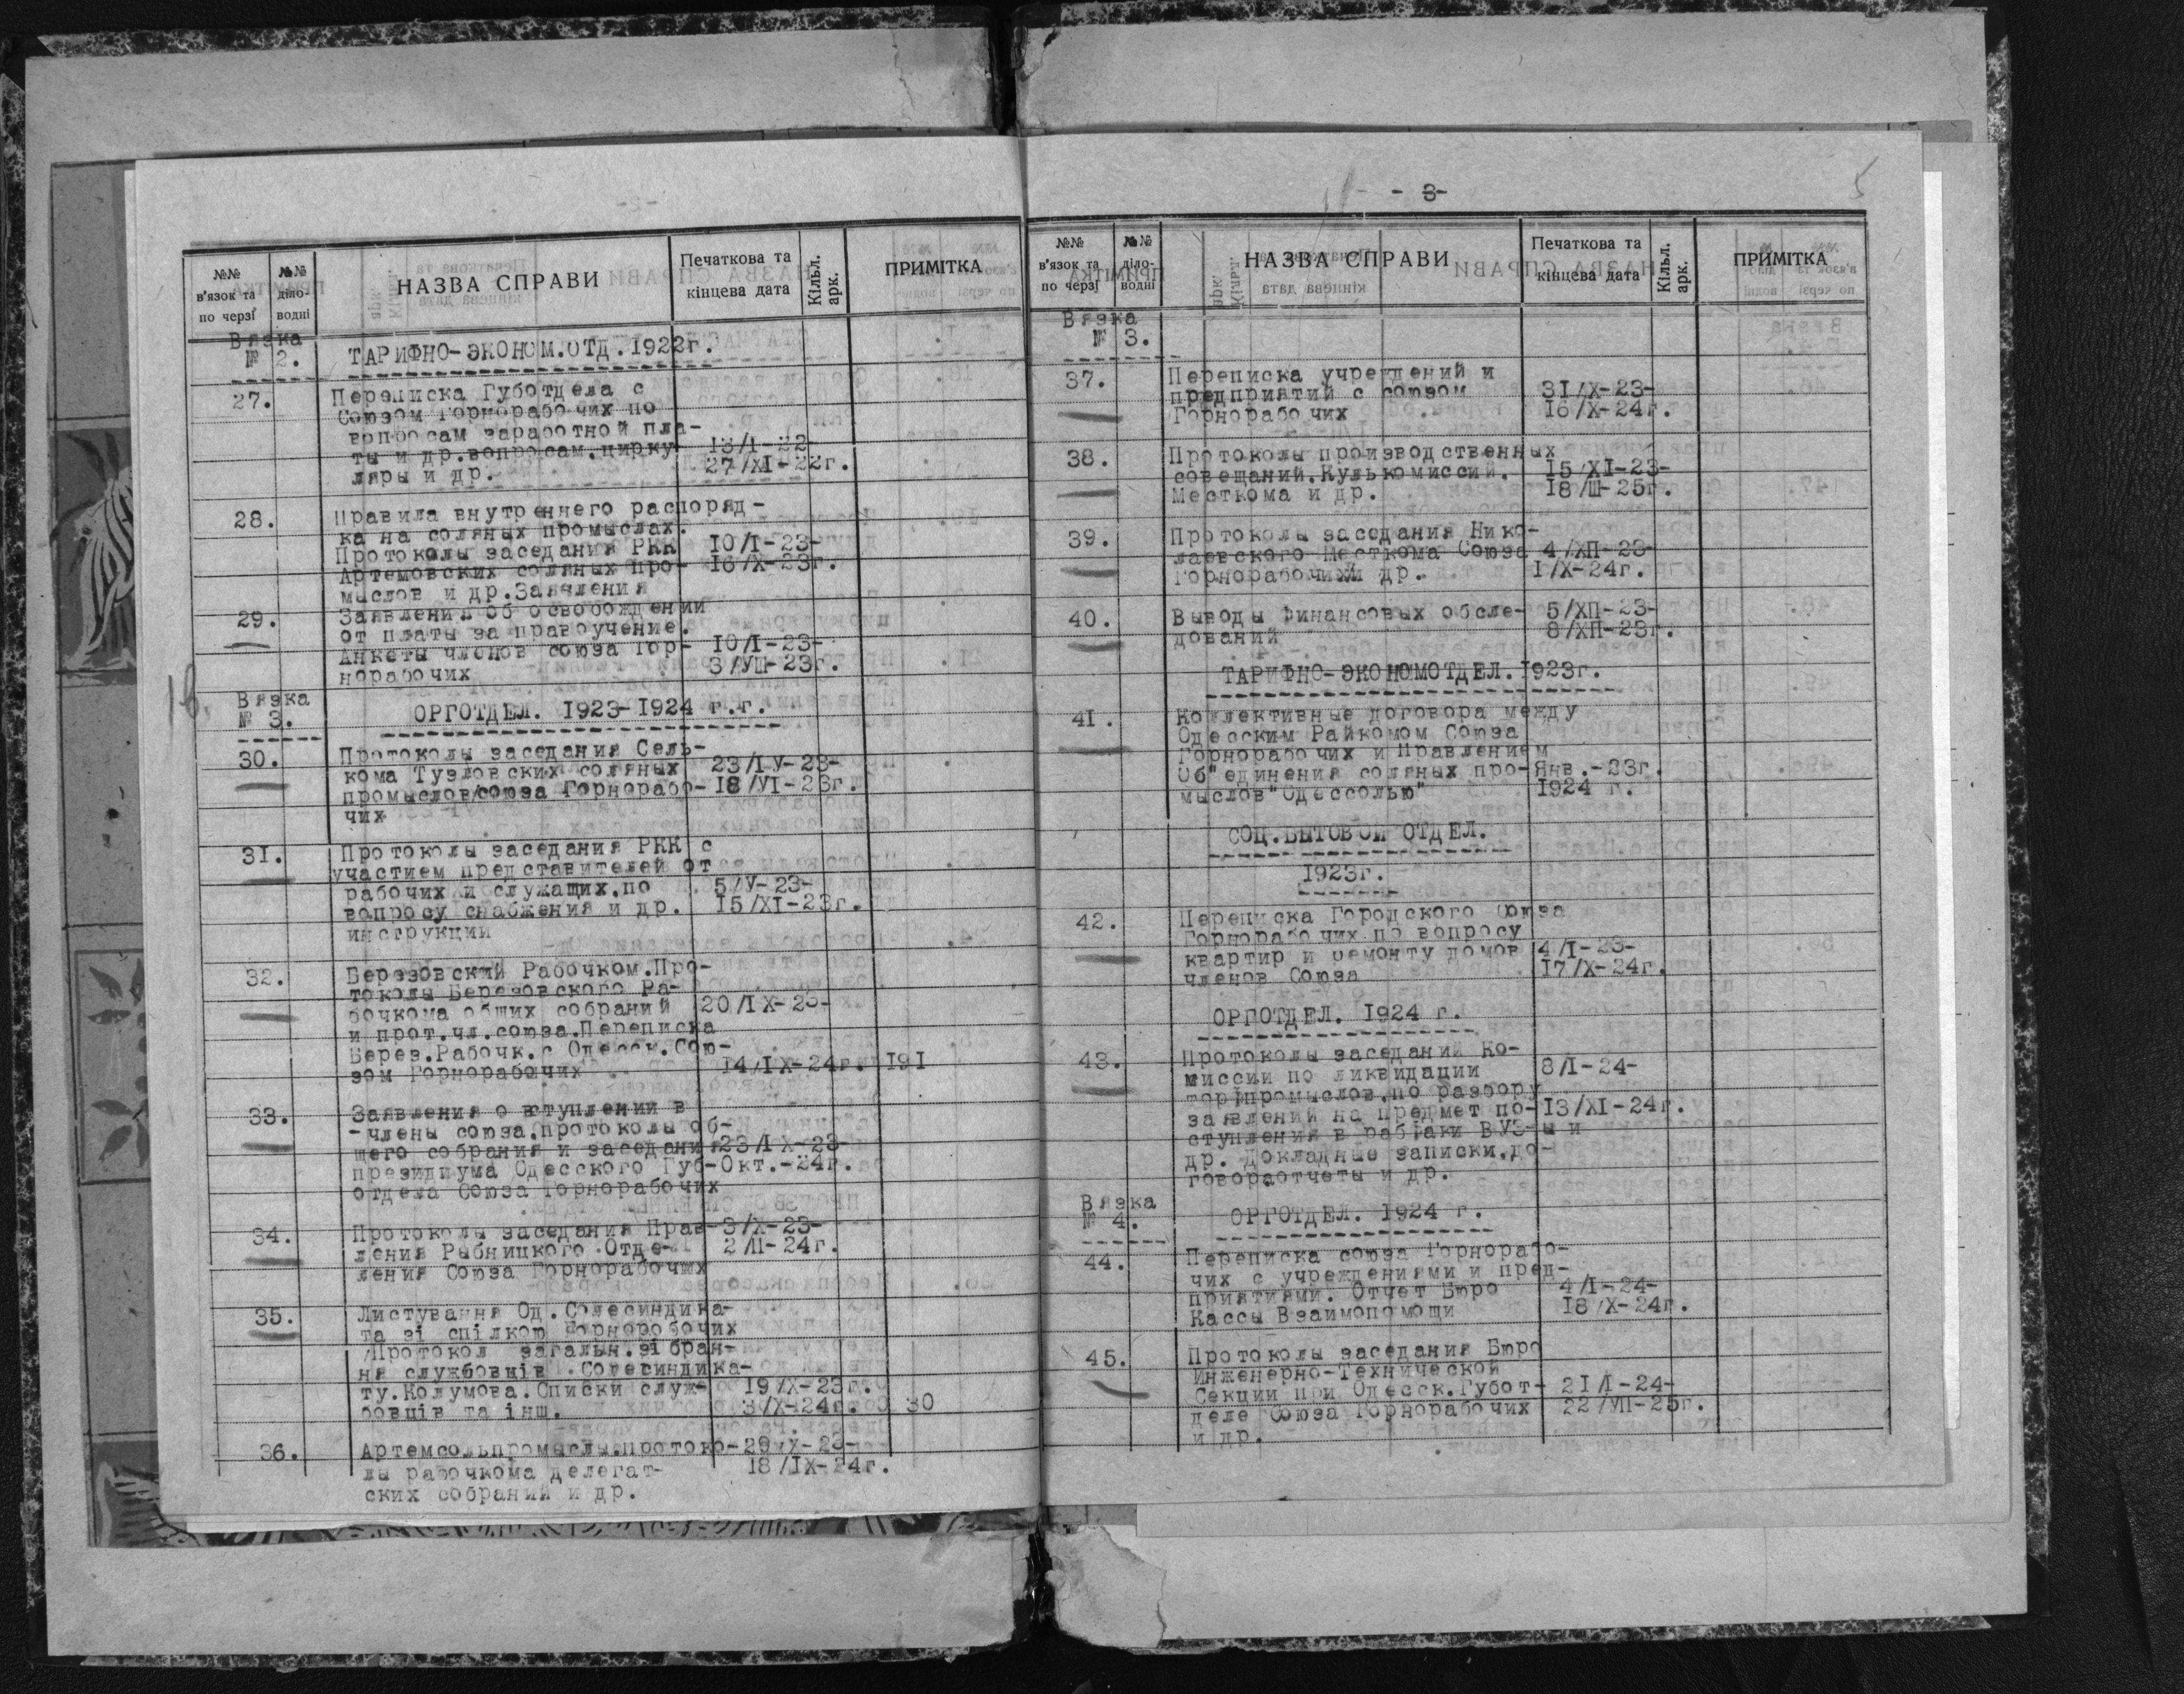 №№ в'язок та по черзі
№№ діло-водні
НАЗВА СПРАВИ
Печаткова та кінцева дата
Кільк. арк.
ПРИМІТКА
Вязка
№ 2.
ТАРИФНО-ЭКОНОМ.ОТД.1922г.
27.
Переписка Губотдела с
Союзом Горнорабочих по
вопросам заработной пла-
ты и др.вопросам,цирку- 13/I-22-
ляры и др. 27/XI-22г.
28.
Правила внутреннего распоряд-
ка на соляных промыслах.
Протоколы заседания РКК 10/I-23-
Артемовских соляных про- 16/X-23г.
мыслов и др.Заявления
29.
Заявления об освобождении
от платы за правоучение.
Анкеты членов союза Гор- 10/I-23-
норабочих 3/УШ-23г.
Вязка
№ 3.
ОРГОТДЕЛ. 1923-1924 г.г.
30.
Протоколы заседания Сель-
кома Тузловских соляных 23/IУ-23-
промыслов/союза Горнорабо- 18/УI-23г.
чих
31.
Протоколы заседания РКК с
участием представителей от
рабочих и служащих,по 5/У-23-
вопросу снабжения и др. 15/XI-23г.
инструкции
32.
Березовский Рабочком.Про-
токолы Березовского Ра-
бочкома общих собраний 20/IX-23-
и прот.чл.союза.Переписка
Берез.Рабочк.с Одесск.Сою-
зом Горнорабочих 14/IX-24г. 191
33.
Заявления о вступлении в
-члены союза,протоколы об-
щего собрания и заседания 23/IX-23-
президиума Одесского Губ- Окт.-24г.
отдела Союза Горнорабочих
34.
Протоколы заседания Прав- 3/X-23-
ления Рыбницкого Отде- 2/П-24г.
ления Союза Горнорабочих
35.
Листування Од. Солесиндика-
та зі спілкою Горноробочих
/Протокол загальн.зібран-
ня службовців Солесиндика-
ту.Колумова.Списки служ- 19/X-23г.
бовців та інш. 3/X-24г. 30
36.
Артемсольпромыслы.протоко- 29/X-23-
лы рабочкома делегат- 18/IX-24г.
ских собраний и др.
- 3-
5
№№ в'язок та по черзі
№№ діло-водні
НАЗВА СПРАВИ
Печаткова та кінцева дата
Кільк. арк.
ПРИМІТКА
Вязка
№ 3.
37.
Переписка учреждений и
предприятий с союзом 31/X-23-
Горнорабочих 16/X-24г.
38.
Протоколы производственных
совещаний.Культкомиссий. 15/XI-23-
Месткома и др. 18/Ш-25г.
39.
Протоколы заседания Нико-
лаевского Месткома Союза 4/ХП-23-
Горнорабочих и др. 1/X-24г.
40.
Выводы финансовых обсле- 5/ХП-23-
дований 8/ХП-23г.
ТАРИФНО-ЭКОНОМОТДЕЛ.1923г.
41.
Коллективные договора между
Одесским Райкомом Союза
Горнорабочих и Правлением
Об"единения соляных про- Янв.-23г.
мыслов"Одессолью" 1924 г.
СОЦ.БЫТОВОЙ ОТДЕЛ.
1923г.
42.
Переписка Городского Союза
Горнорабочих по вопросу
квартир и ремонту домов 4/I-23-
членов Союза 17/X-24г.
ОРГОТДЕЛ. 1924 г.
43.
Протоколы заседаний Ко-
миссии по ликвидации 8/I-24-
торфпромыслов,по разбору
заявлений на предмет по- 13/XI-24г.
ступления в рабфаки ВУЗ-ы и
др. Докладные записки,до-
говора отчеты и др.
Вязка
№ 4.
ОРГОТДЕЛ. 1924 г.
44.
Переписка союза Горнорабо-
чих с учреждениями и пред-
приятиями. Отчет Бюро 4/I-24-
Кассы Взаимопомощи 18/X-24г.
45.
Протоколы заседания Бюро
Инженерно-Технической
Секции при Одесск.Губот- 21/I-24-
деле Союза Горнорабочих 22/УП-25г.
и др.